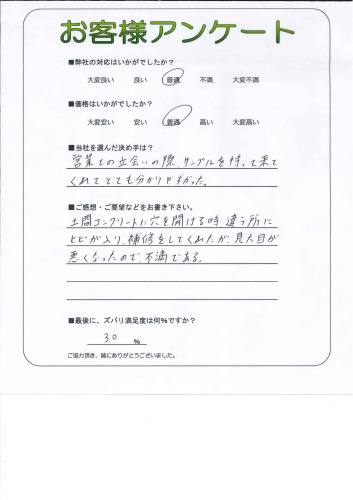 お客様アンケート
■弊社の対応はいかがでしたか？
大変良い 良い 普通 不満 大変不満
■価格はいかがでしたか？
大変安い 安い 普通 高い 大変高い
■当社を選んだ決め手は？
営業との立会いの際、サンプルを持って来て
くれてとても分かりやすかった。
■ご感想・ご要望などをお書き下さい。
土間コンクリートに穴を開ける時違う所に
ヒビが入り、補修をしてくれたが、見た目が
悪くなったので、不満である。
■最後に、ズバリ満足度は何％ですか？
30 %
ご協力頂き、誠にありがとうございました。